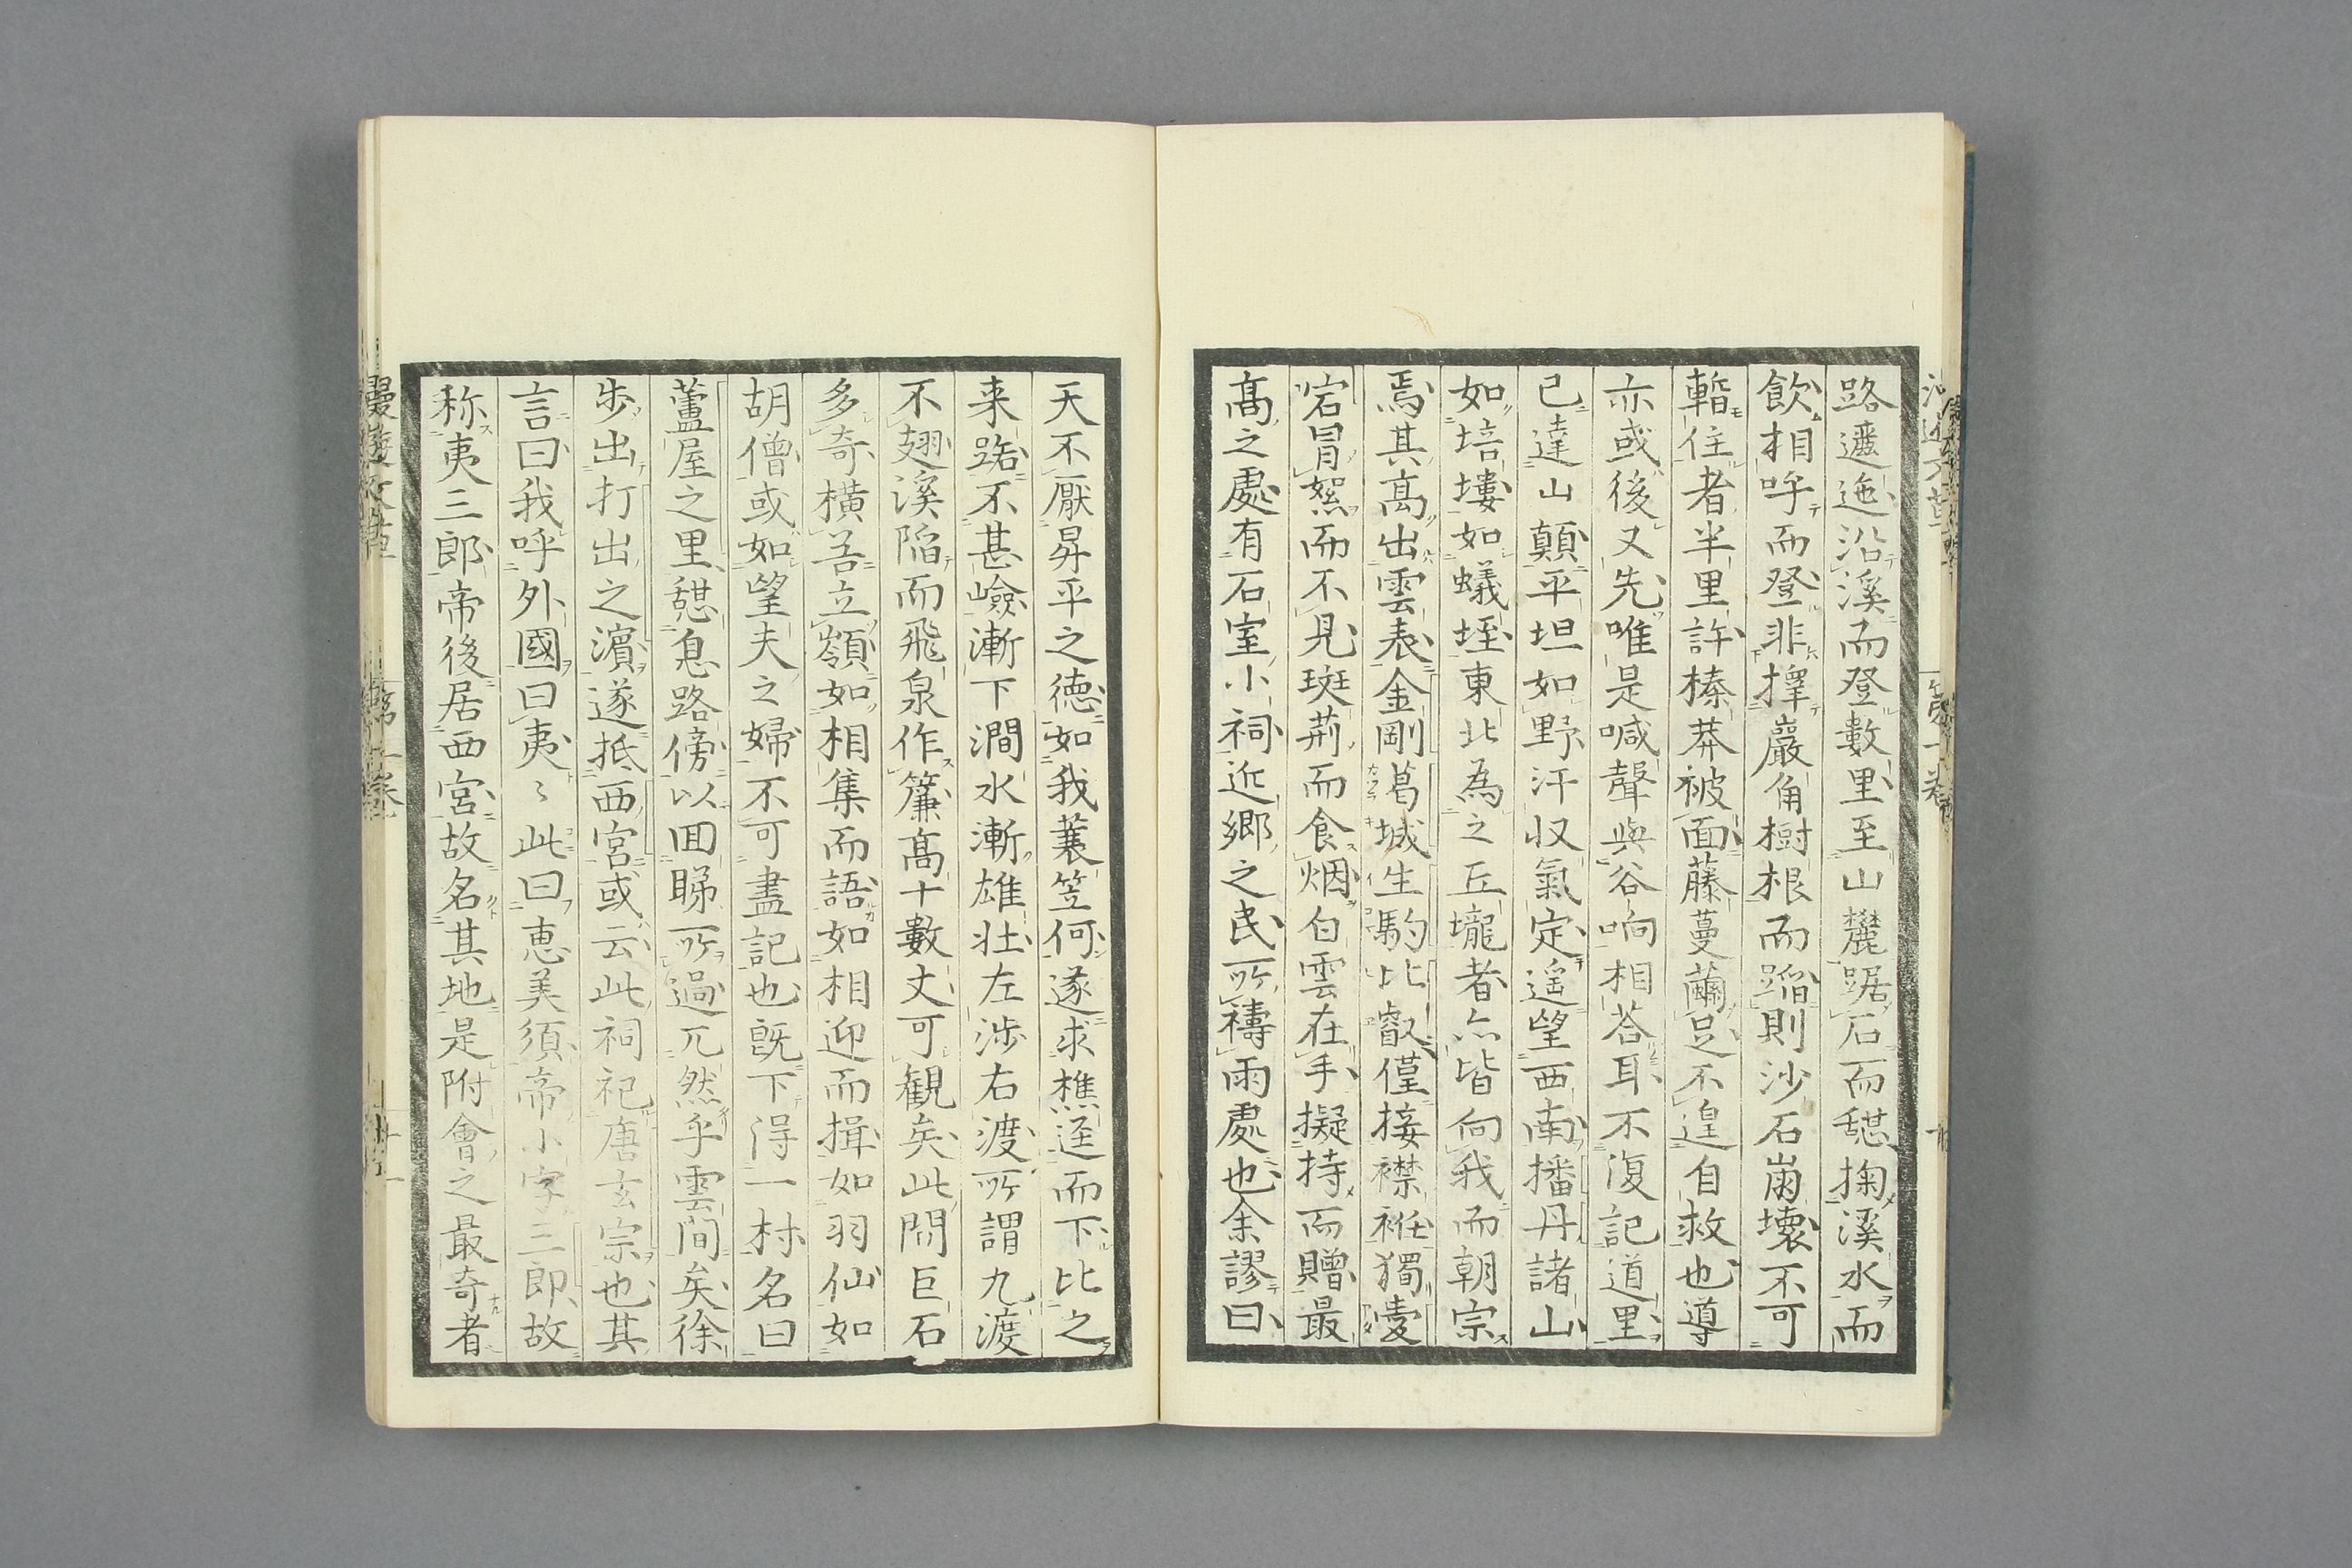 路邐迤沿溪而登數里至山麓踞石而憇掬溪水而
飲相呼而登非擇巖角樹根而蹈則沙石崩壊不可
暫住者半里許榛莽被面藤蔓繭足不遑自救也導
亦或後又先唯是喊聲與谷响相荅耳不復記道里
已達山顛平坦如野汗収氣定遥望西南播丹諸山
如培塿如蟻垤東北為之丘壠者亦皆向我而朝宗
焉其高出雲表金剛葛城生駒比叡僅接襟袵獨愛
宕冒絮而不見斑荊而食烟白雲在手擬持而贈最
高之處有石室小祠近郷之民所禱雨處也余謬曰
天不厭昇平之德如我蓑笠何遂求樵逕而下比之
来路不甚嶮漸下澗水漸雄壮左渉右渡所謂九渡
不翅溪陥而飛泉作簾高十數丈可観矣此間巨石
多奇横峇立嶺如相集而語如相迎而揖如羽仙如
胡僧或如望夫之婦不可盡記也既下得一村名曰
蘆屋之里憇息路傍以囬睇所過兀然乎雲間矣徐
歩出打出之濵遂抵西宮或云此祠祀唐玄宗也其
言曰我呼外國曰夷〻此曰恵美須帝小字三郎故
称夷三郎帝後居西宮故名其地是附會之最奇者